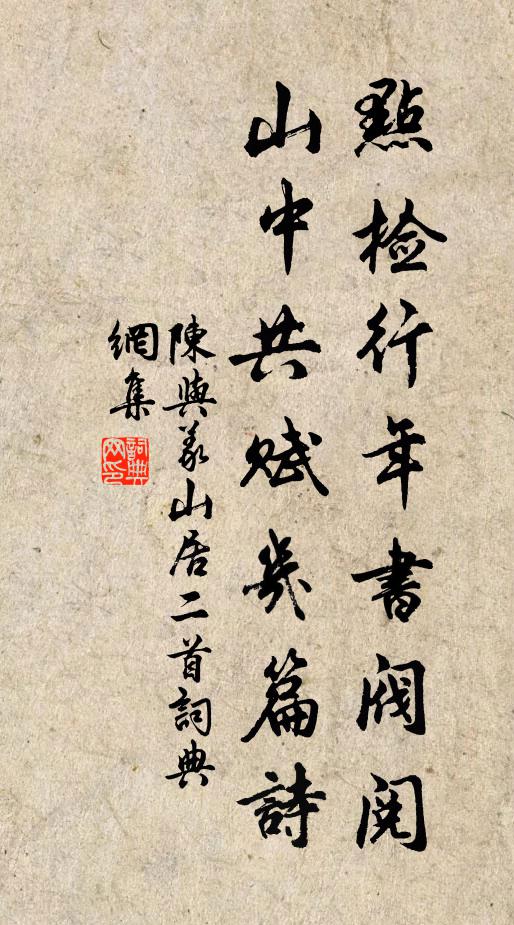 點檢行年書閥閱
山中共賦幾篇詩
陳與義山居二首詞典
網集
詞典網印